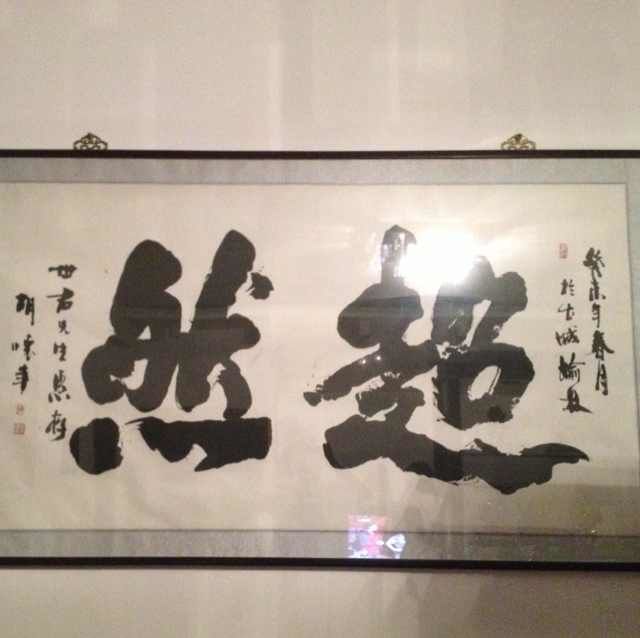 癸未年春月
於古城
超然
世君先生惠存
胡